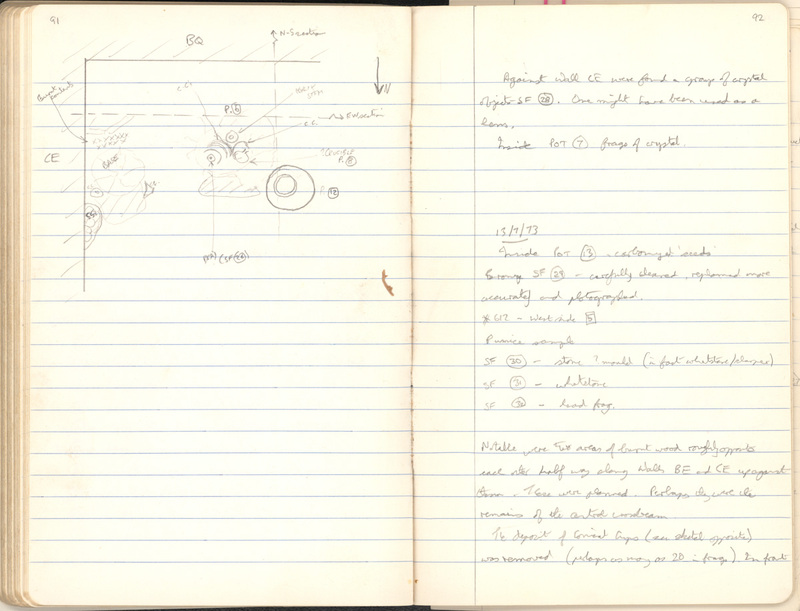 91
BQ
N-S section
N
C.C.
P. 6
C.C.
CE
BASE
P. 8
P. 12
92
Against Wall CE were found a group of crystal
objects SF 28. One might have been used as a
lens.
Inside POT 7 frags of crystal.
13/7/73
Inside POT 13 - carbonized 'seeds'
Bronze SF 29 - carefully cleaned, replanned more
accurately and photographed.
- West side 5
Pumice sample
SF 30 - stone ? mould (in fact whetstone/
SF 31 - whetstone
SF - frag.
Notable were two areas of burnt wood roughly opposite
each other half way along Walls BE and CE up against
them. These were planned. Perhaps they were the
remains of the central
The deposit of Conical Cups (see sketch opposite)
was removed (perhaps as many as 20 in frags). In front